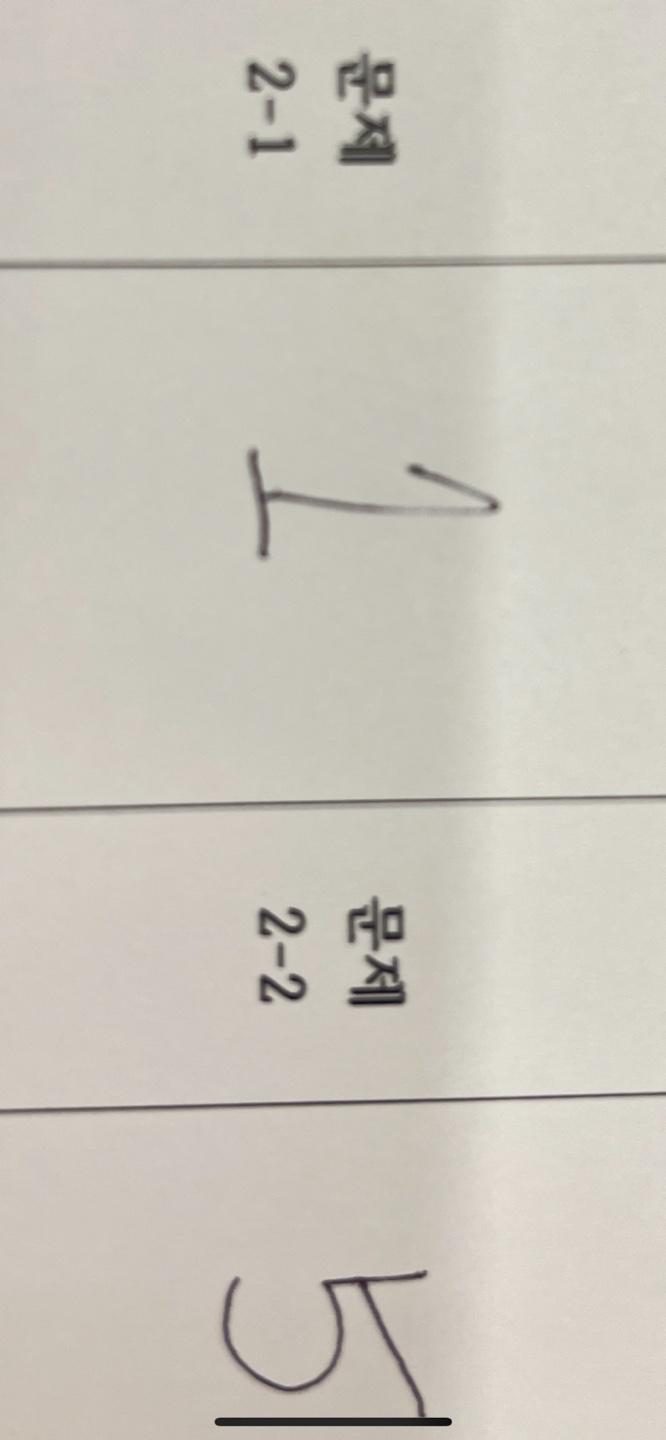 문제
2-1
1
문제
2-2
5